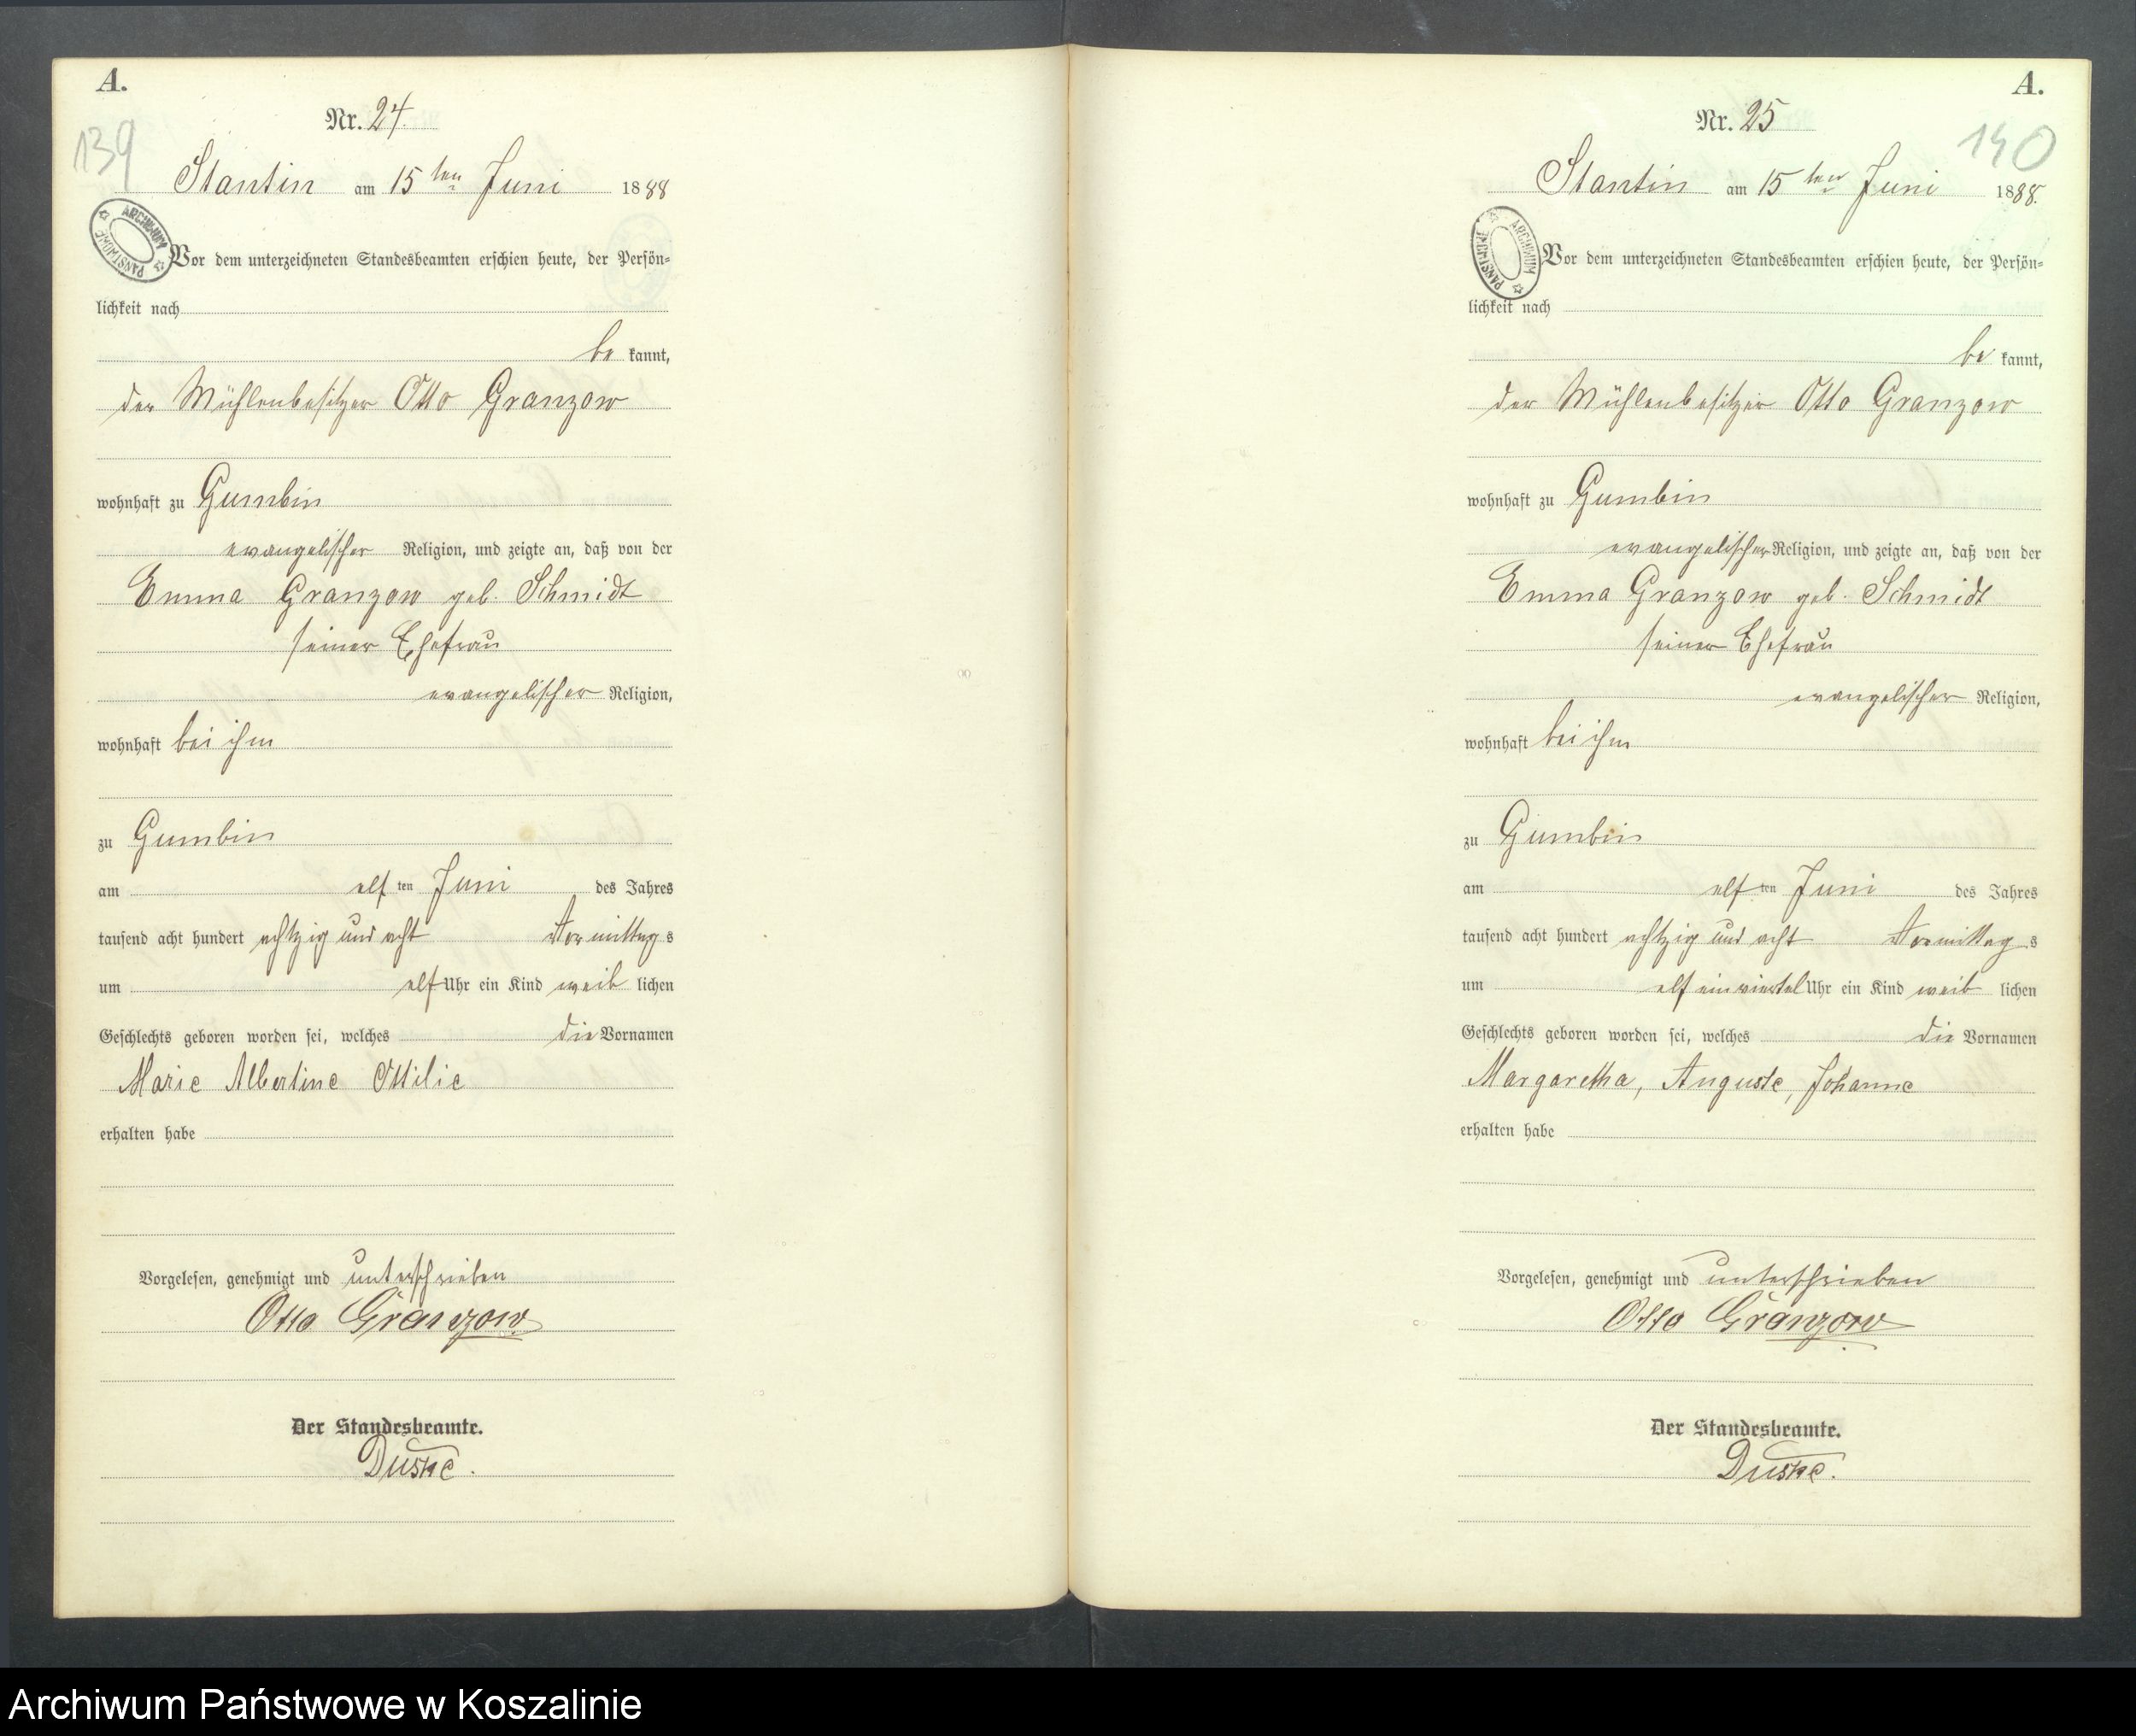 A.
Nr. 24.
139
Stantin am 15ten Juni 1888
ARCHIWUM PAŃSTWOWE
Vor dem unterzeichneten Standesbeamten erschien heute, der Persön-
lichkeit nach
be kannt,
der Mühlenbesitzer Otto Granzow
wohnhaft zu Gumbin
evangelischer Religion, und zeigte an, daß von der
Emma Granzow geb. Schmidt
seiner Ehefrau
evangelischer Religion,
wohnhaft bei ihm
zu Gumbin
am elf ten Juni des Jahres
tausend acht hundert achtzig und acht Vormittag s
um elf Uhr ein Kind weib lichen
Geschlechts geboren worden sei, welches die Vornamen
Marie Albertine Ottilie
erhalten habe
Vorgelesen, genehmigt und unterschrieben
Otto Granzow
Der Standesbeamte.
Duske.
A.
Nr. 25
140
Stantin am 15ten Juni 1888.
ARCHIWUM PAŃSTWOWE
Vor dem unterzeichneten Standesbeamten erschien heute, der Persön-
lichkeit nach
be kannt,
der Mühlenbesitzer Otto Granzow
wohnhaft zu Gumbin
evangelischer Religion, und zeigte an, daß von der
Emma Granzow geb. Schmidt
seiner Ehefrau
evangelischer Religion,
wohnhaft bei ihm
zu Gumbin
am elf ten Juni des Jahres
tausend acht hundert achtzig und acht Vormittag s
um elf einviertel Uhr ein Kind weib lichen
Geschlechts geboren worden sei, welches die Vornamen
Margaretha, Auguste, Johanne
erhalten habe
Vorgelesen, genehmigt und unterschrieben
Otto Granzow
Der Standesbeamte.
Duske.
Archiwum Państwowe w Koszalinie